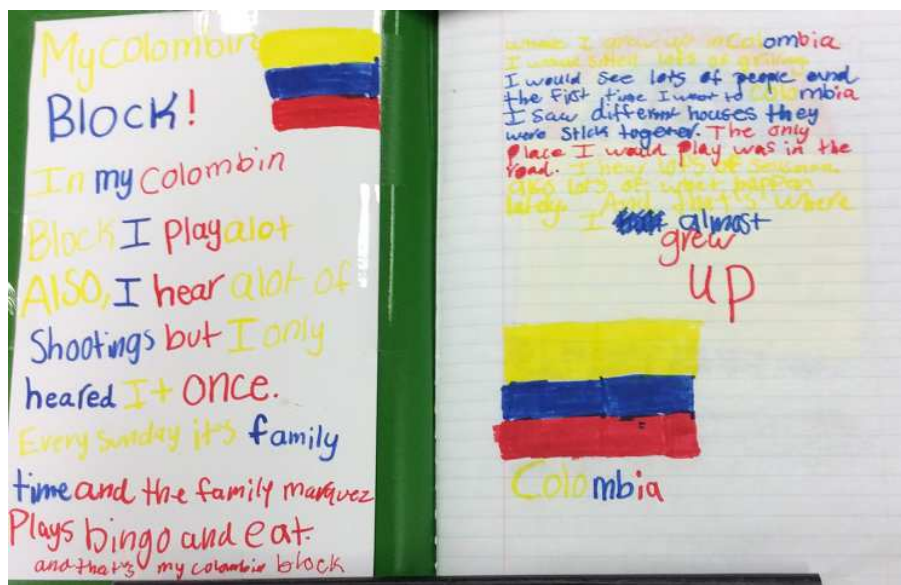 My colombin
Block!
In my colombin
Block I play alot
ALSO, I hear alot of
Shootings but I only
heared It once.
Every sunday it's family
time and the family marquez
Plays bingo and eat.
and that's my colombin block
where I grew up in Colombia
I would smell lots of grilling
I would see lots of people and
the first time I went to Colombia
I saw different houses they
were stick together. The only
place I would play was in the
road. I hear lots of
also lots of what happen
And that's where
I almost
grew
up
Colombia